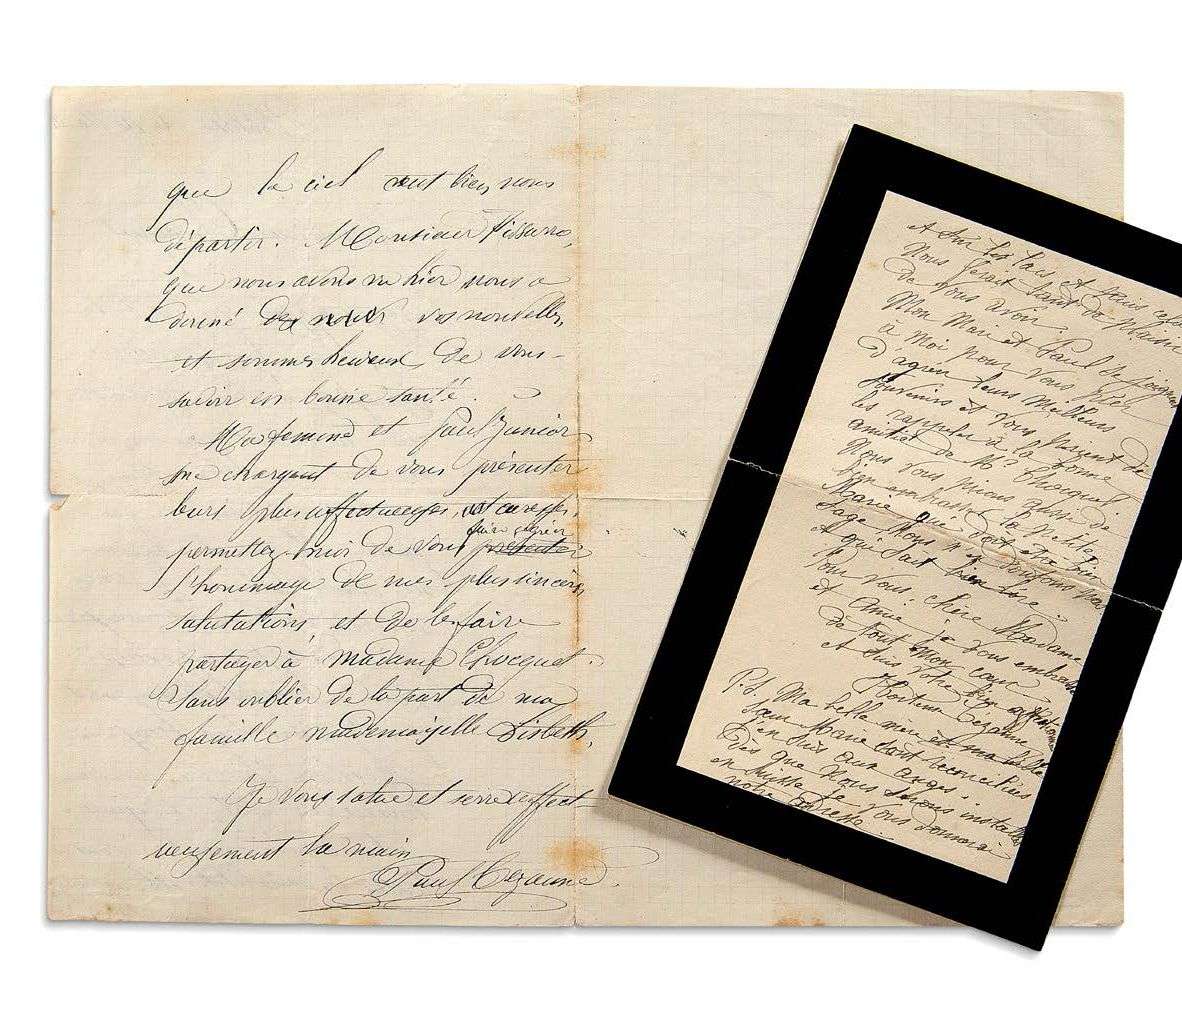 que le ciel veut bien nous
départir. Monsieur Pissarro,
que nous avons vu hier nous a
donné de vos nouvelles,
et sommes heureux de vous
savoir en bonne santé.
Ma femme et Paul Junior
me chargent de vous présenter
leurs plus affectueuses
faire agréer
permettez-moi de vous présenter
l'hommage de mes plus sincères
salutations, et de le faire
partager à madame Chocquet.
Sans oublier de la part de ma
famille mademoiselle
Je vous salue et serre affect
ueusement la main
Paul Cezanne.
et sur les lacs, et
Nous ferait tant de plaisir
de vous avoir.
Mon Mari et Paul se joignent
à moi pour vous prier
d'agréer leurs meilleurs
souvenirs et vous prient de
les rappeler à la bonne
amitié de Mr Chocquet
Nous vous prions aussi de
bien embrasser la petite
Marie qui doit être bien
sage Nous n'en doutons pas
et qui sait bien lire.
Pour vous, chère Madame
et Amie je vous embrasse
de tout mon cœur
et suis votre bien affectionnée
Hortense Cezanne
P.S. Ma belle mère et ma belle
sœur Marie sont reconciliées
J'en suis aux anges.
Dès que nous serons installés
en Suisse je vous donnerai
notre adresse.